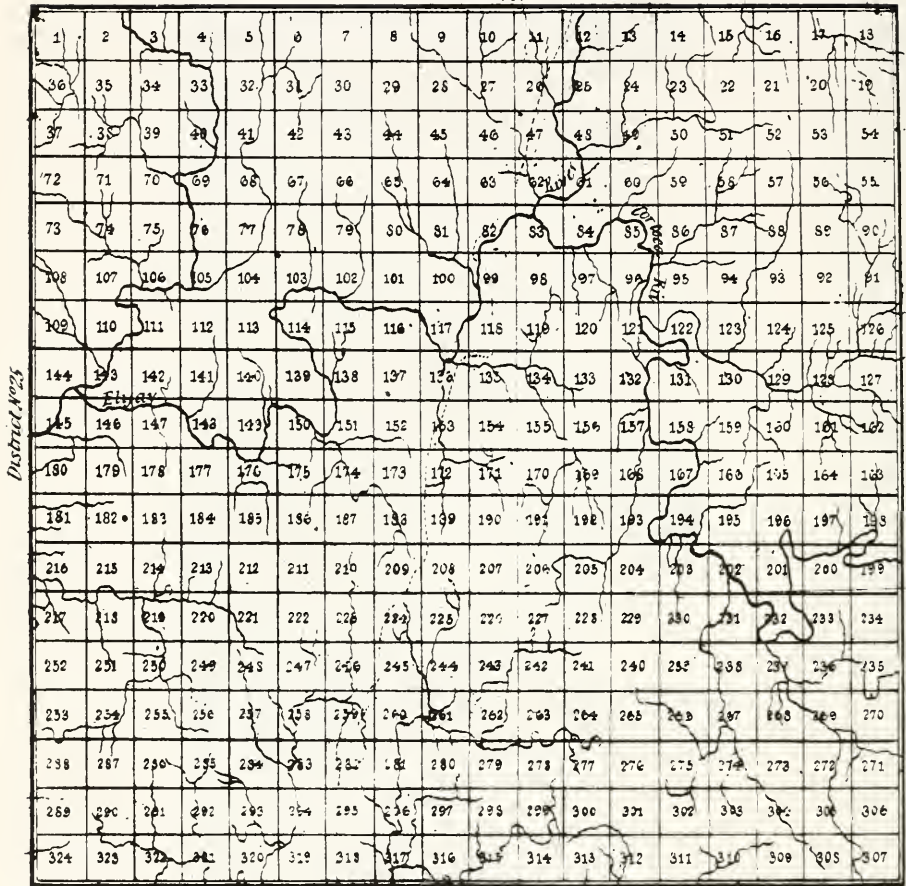 1 2 3 4 5 6 7 8 9 10 11 12 13 14 15 16 17 18
36 35 34 33 32 31 30 29 28 27 26 25 24 23 22 21 20 19
37 38 39 40 41 42 43 44 45 46 47 48 49 50 51 52 53 54
72 71 70 69 68 67 66 65 64 63 62 61 60 59 58 57 56 55
River
73 74 75 76 77 78 79 80 81 82 83 84 85 86 87 88 89 90
108 107 106 105 104 103 102 101 100 99 98 97 96 95 94 93 92 91
Riv
109 110 111 112 113 114 115 116 117 118 119 120 121 122 123 124 125 126
144 143 142 141 140 139 138 137 136 135 134 133 132 131 130 129 128 127
Elijay
District Nº25
145 146 147 148 149 150 151 152 153 154 155 156 157 158 159 160 161 162
180 179 178 177 176 175 174 173 172 171 170 169 168 167 166 165 164 163
181 182 183 184 185 186 187 188 189 190 191 192 193 194 195 196 197 198
216 215 214 213 212 211 210 209 208 207 206 205 204 203 202 201 200 199
217 218 219 220 221 222 223 224 225 226 227 228 229 230 231 232 233 234
252 251 250 249 248 247 246 245 244 243 242 241 240 239 238 237 236 235
253 254 255 256 257 258 259 260 261 262 263 264 265 266 267 268 269 270
288 287 286 285 284 283 282 281 280 279 278 277 276 275 274 273 272 271
289 290 291 292 293 294 295 296 297 298 299 300 301 302 303 304 305 306
324 323 322 321 320 319 318 317 316 315 314 313 312 311 310 309 308 307